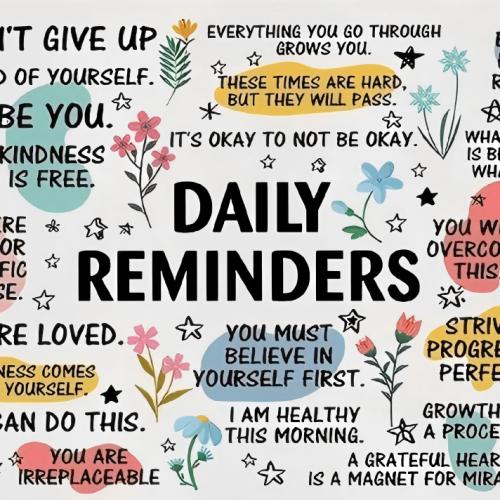 N'T GIVE UP
D OF YOURSELF.
BE YOU.
KINDNESS
IS FREE.
EVERYTHING YOU GO THROUGH
GROWS YOU.
THESE TIMES ARE HARD,
BUT THEY WILL PASS.
IT'S OKAY TO NOT BE OKAY.
R
WHA
IS B
WHA
DAILY
REMINDERS
ERE
OR
FIC
SE.
YOU W
OVERCO
THIS
RE LOVED.
NESS COMES
YOURSELF.
CAN DO THIS.
YOU ARE
IRREPLACEABLE
YOU MUST
BELIEVE IN
YOURSELF FIRST.
I AM HEALTHY
THIS MORNING.
STRIV
PROGRE
PERFE
GROWTH
A PROCE
A GRATEFUL HEAR
IS A MAGNET FOR MIRA